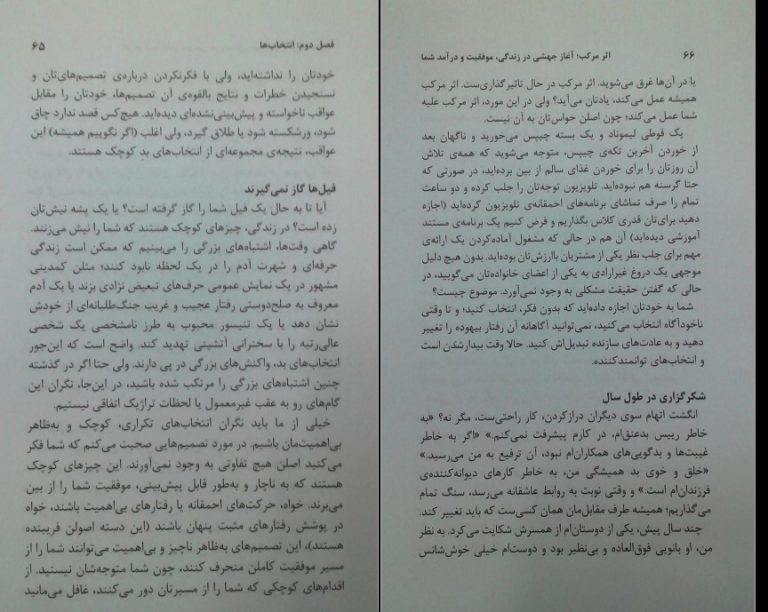 فصل دوم: انتخاب‌ها ۶۵
خودتان را نداشته‌اید، ولی با فکرنکردن درباره‌ی تصمیم‌های‌تان و
نسنجیدن خطرات و نتایج بالقوه‌ی آن تصمیم‌ها، خودتان را مقابل
عواقب ناخواسته و پیش‌بینی‌نشده‌ای دیده‌اید. هیچ‌کس قصد ندارد چاق
شود، ورشکسته شود یا طلاق گیرد، ولی اغلب (اگر نگوییم همیشه) این
عواقب، نتیجه‌ی مجموعه‌ای از انتخاب‌های بدِ کوچک هستند.
فیل‌ها گاز نمی‌گیرند
آیا تا به حال یک فیل شما را گاز گرفته است؟ با یک پشه نیش‌تان
زده است؟ در زندگی، چیزهای کوچک هستند که شما را نیش می‌زنند.
گاهی وقت‌ها، اشتباه‌های بزرگی را می‌بینیم که ممکن است زندگی
حرفه‌ای و شهرت آدم را در یک لحظه نابود کنند؛ مثلن کمدینی
مشهور در یک نمایش عمومی حرف‌های تبعیض نژادی بزند یا یک آدم
معروف به صلح‌دوستی رفتار عجیب و غریب جنگ‌طلبانه‌ای از خودش
نشان دهد یا یک تنیسور محبوب به طرز نامشخصی یک شخصی
عالی‌رتبه را با سخنرانی آتشینی تهدید کند. واضح است که این‌جور
انتخاب‌های بد، واکنش‌های بزرگی در پی دارند. ولی حتا اگر در گذشته
چنین اشتباه‌های بزرگی را مرتکب شده باشید، در این‌جا، نگران این
گام‌های رو به عقب غیرمعمول یا لحظات تراژیک اتفاقی نیستیم.
خیلی از ما باید نگران انتخاب‌های تکراری، کوچک و به‌ظاهر
بی‌اهمیت‌مان باشیم. در مورد تصمیم‌هایی صحبت می‌کنم که شما فکر
می‌کنید اصلن هیچ تفاوتی به وجود نمی‌آورند. این چیزهای کوچک
هستند که به ناچار و به‌طور قابل پیش‌بینی، موفقیت شما را از بین
می‌برند. خواه، حرکت‌های احمقانه یا رفتارهای بی‌اهمیت باشند، خواه
در پوشش رفتارهای مثبت پنهان باشند (این دسته اصولن فریبنده
هستند)، این تصمیم‌های به‌ظاهر ناچیز و بی‌اهمیت می‌توانند شما را از
مسیر موفقیت کاملن منحرف کنند، چون شما متوجه‌شان نیستید. از
اقدام‌های کوچکی که شما را از مسیرتان دور می‌کنند، غافل می‌مانید
۶۶ اثر مرکب؛ آغاز جهشی در زندگی، موفقیت و درآمد شما
یا در آن‌ها غرق می‌شوید. اثر مرکب در حال تاثیرگذاری‌ست. اثر مرکب
همیشه عمل می‌کند، یادتان می‌آید؟ ولی در این مورد، اثر مرکب علیه
شما عمل می‌کند؛ چون اصلن حواس‌تان به آن نیست.
یک قوطی لیموناد و یک بسته چیپس می‌خورید و ناگهان بعد
از خوردن آخرین تکه‌ی چیپس، متوجه می‌شوید که همه‌ی تلاش
آن روزتان را برای خوردن غذای سالم از بین برده‌اید، در صورتی که
حتا گرسنه هم نبوده‌اید. تلویزیون توجه‌تان را جلب کرده و دو ساعت
تمام را صرف تماشای برنامه‌های احمقانه‌ی تلویزیون کرده‌اید (اجازه
دهید برای‌تان قدری کلاس بگذاریم و فرض کنیم یک برنامه‌ی مستند
آموزشی دیده‌اید) آن هم در حالی که مشغول آماده‌کردن یک ارائه‌ی
مهم برای جلب نظر یکی از مشتریان باارزش‌تان بوده‌اید. بدون هیچ دلیل
موجهی یک دروغ غیرارادی به یکی از اعضای خانواده‌تان می‌گویید، در
حالی که گفتن حقیقت مشکلی به وجود نمی‌آورد. موضوع چیست؟
شما به خودتان اجازه داده‌اید که بدون فکر، انتخاب کنید؛ و تا وقتی
ناخودآگاه انتخاب می‌کنید، نمی‌توانید آگاهانه آن رفتار بیهوده را تغییر
دهید و به عادت‌های سازنده تبدیل‌اش کنید. حالا وقت بیدارشدن است
و انتخاب‌های توانمندکننده.
شکرگزاری در طول سال
انگشت اتهام سوی دیگران درازکردن، کار راحتی‌ست، مگر نه؟ «به
خاطر رییس بدعنق‌ام، در کارم پیشرفت نمی‌کنم.» «اگر به خاطر
غیبت‌ها و بدگویی‌های همکاران‌ام نبود، آن ترفیع به من می‌رسید.»
«خلق و خوی بد همیشگی من، به خاطر کارهای دیوانه‌کننده‌ی
فرزندان‌ام است.» و وقتی نوبت به روابط عاشقانه می‌رسد، سنگ تمام
می‌گذاریم؛ همیشه طرف مقابل‌مان همان کسی‌ست که باید تغییر کند.
چند سال پیش، یکی از دوستان‌ام از همسرش شکایت می‌کرد. به نظر
من، او بانویی فوق‌العاده و بی‌نظیر بود و دوست‌ام خیلی خوش‌شانس